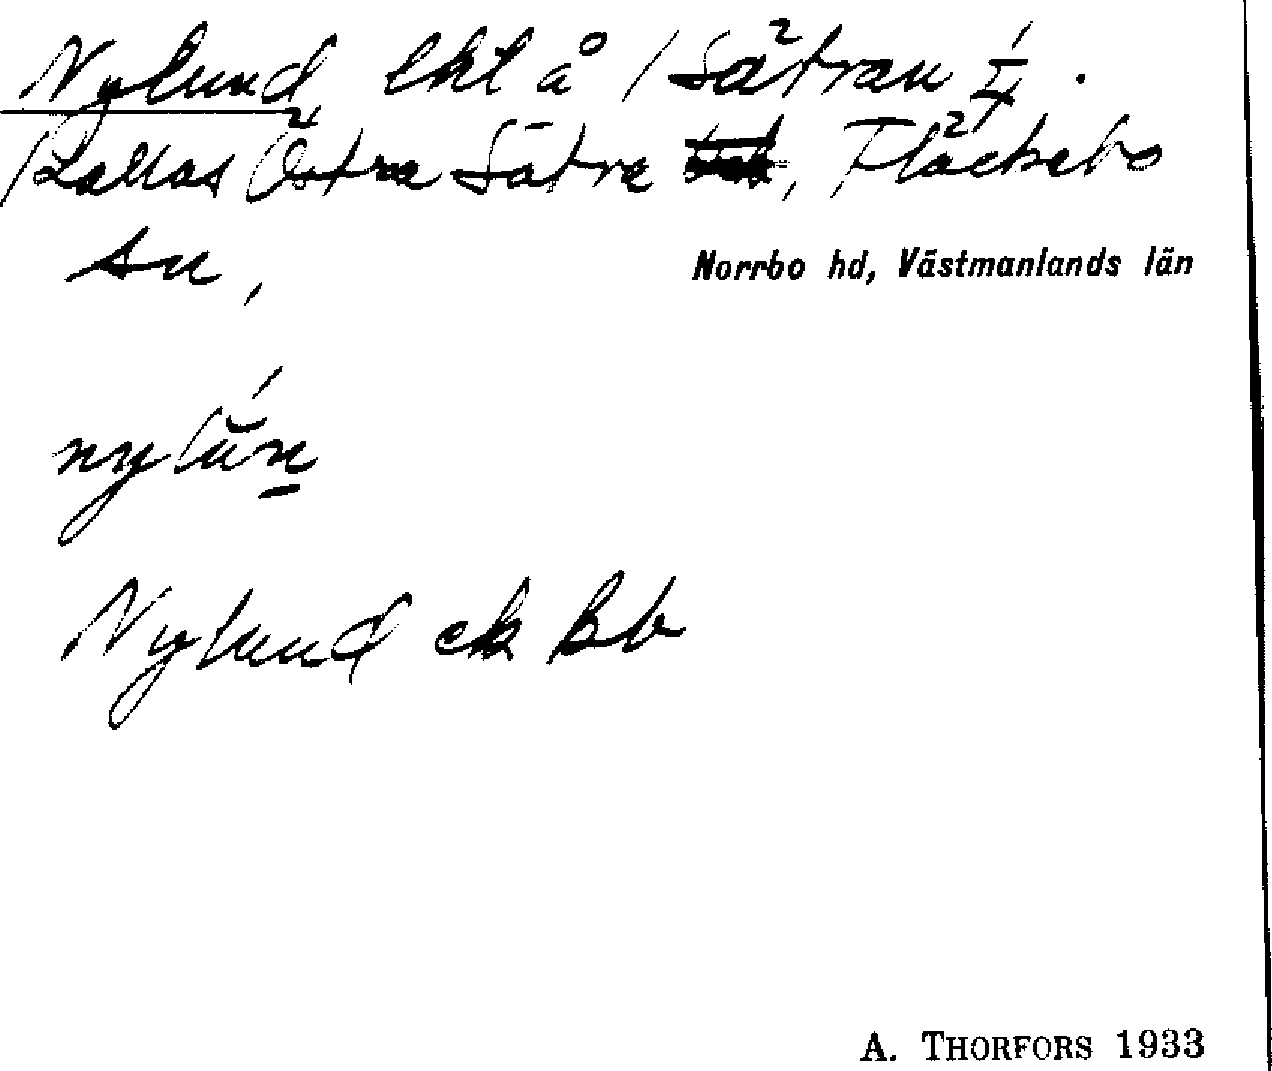 Nylund lht å /Sätran 1/4.
Kallas Östra Sätra, Fläckebo
sn,
Norrbo hd, Västmanlands län
nylun
Nylund ek Bb
A. THORFORS 1933